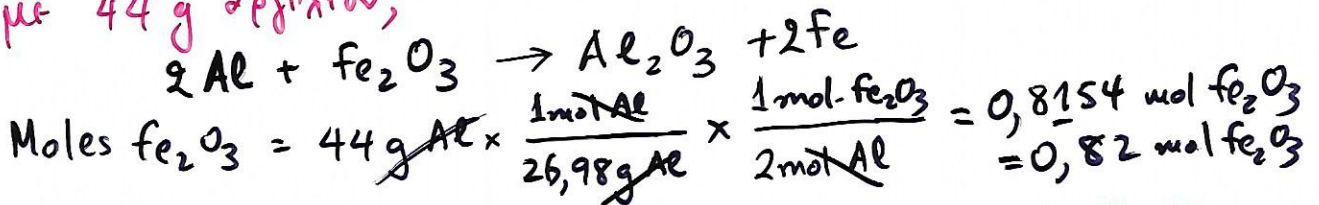 με 44 g αργιλίου;
2 Al + Fe₂O₃ → Al₂O₃ + 2Fe
Moles Fe₂O₃ = 44 g Al × 1 mol Al / 26,98 g Al × 1 mol Fe₂O₃ / 2 mol Al = 0,8154 mol Fe₂O₃
= 0,82 mol Fe₂O₃